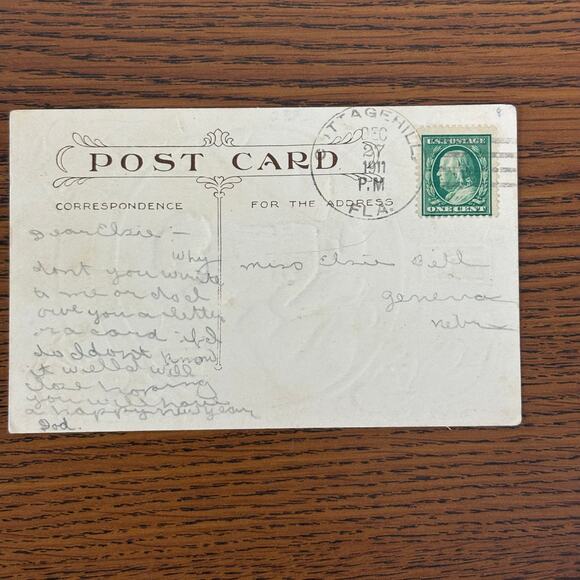 POST CARD
CORRESPONDENCE
FOR THE ADDRESS
COTTAGEHILL
DEC
27
1911
P.M
FLA.
U.S. POSTAGE
ONE CENT
8
Dear Elsie:-
Why
dont you write
to me or do I
owe you a letter
or a card if I
do I dont know
it wells will
close hoping
you will have
a happy New Year
Dod.
Miss Elsie
Geneva
Nebr